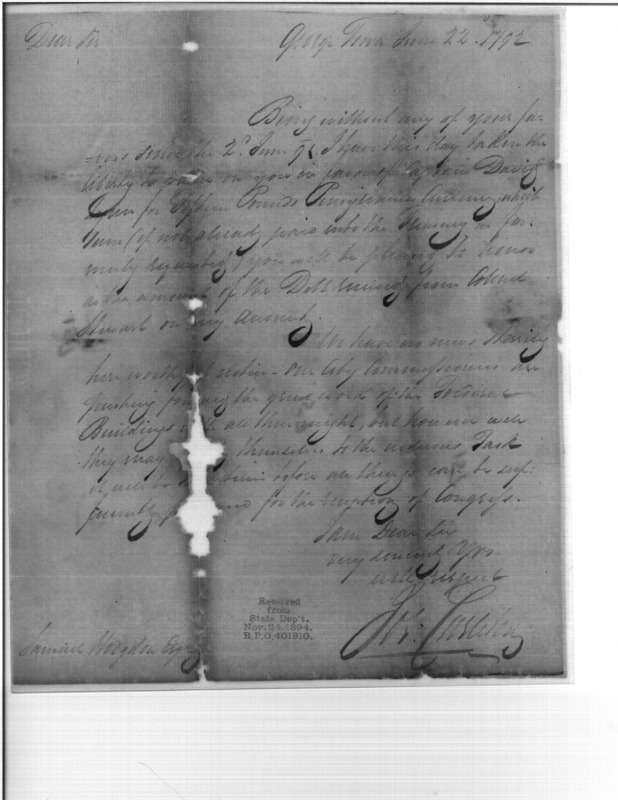 Dear Sir
George Town June 22d. 1792
Being without any of your fa-
-vors since the 2d. June I have this day taken the
liberty to on you in favor of Captain David
for Fifteen Pounds Pensylvania Currency, which
Sum (if not already paid into the Treasury as for-
merly requested) you will be pleased to honor
as the amount of the Debt from Colonel
Stewart on my Account.
We have no news stirring
here worthy of notice - our City Commissioners are
pushing forward the great work of the
Buildings with all their might, but however well
they may themselves to the arduous Task
it will be before all things can be suf-
ficiently for the reception of Congress.
I am Dear Sir
very sincerely Yrs
with respect
Jos: Carleton
Samuel Hodgdon Esqr
Received
from
State Dep't.
Nov. 24, 1894.
R.P.O. 401210.